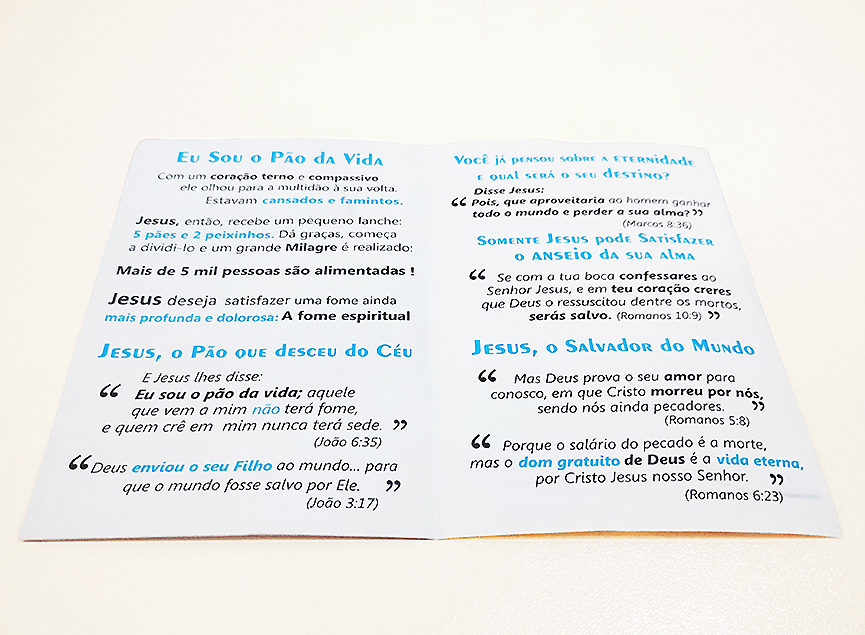 Eu Sou o Pão da Vida
Com um coração terno e compassivo
ele olhou para a multidão à sua volta.
Estavam cansados e famintos.
Jesus, então, recebe um pequeno lanche:
5 pães e 2 peixinhos. Dá graças, começa
a dividi-lo e um grande Milagre é realizado:
Mais de 5 mil pessoas são alimentadas !
Jesus deseja satisfazer uma fome ainda
mais profunda e dolorosa: A fome espiritual
Jesus, o Pão que desceu do Céu
E Jesus lhes disse:
“ Eu sou o pão da vida; aquele
que vem a mim não terá fome,
e quem crê em mim nunca terá sede. ”
(João 6:35)
“ Deus enviou o seu Filho ao mundo... para
que o mundo fosse salvo por Ele. ”
(João 3:17)
Você já pensou sobre a eternidade
e qual será o seu destino?
Disse Jesus:
“ Pois, que aproveitaria ao homem ganhar
todo o mundo e perder a sua alma? ”
(Marcos 8:36)
Somente Jesus pode Satisfazer
o anseio da sua alma
“ Se com a tua boca confessares ao
Senhor Jesus, e em teu coração creres
que Deus o ressuscitou dentre os mortos,
serás salvo. (Romanos 10:9) ”
Jesus, o Salvador do Mundo
“ Mas Deus prova o seu amor para
conosco, em que Cristo morreu por nós,
sendo nós ainda pecadores. ”
(Romanos 5:8)
“ Porque o salário do pecado é a morte,
mas o dom gratuito de Deus é a vida eterna,
por Cristo Jesus nosso Senhor. ”
(Romanos 6:23)